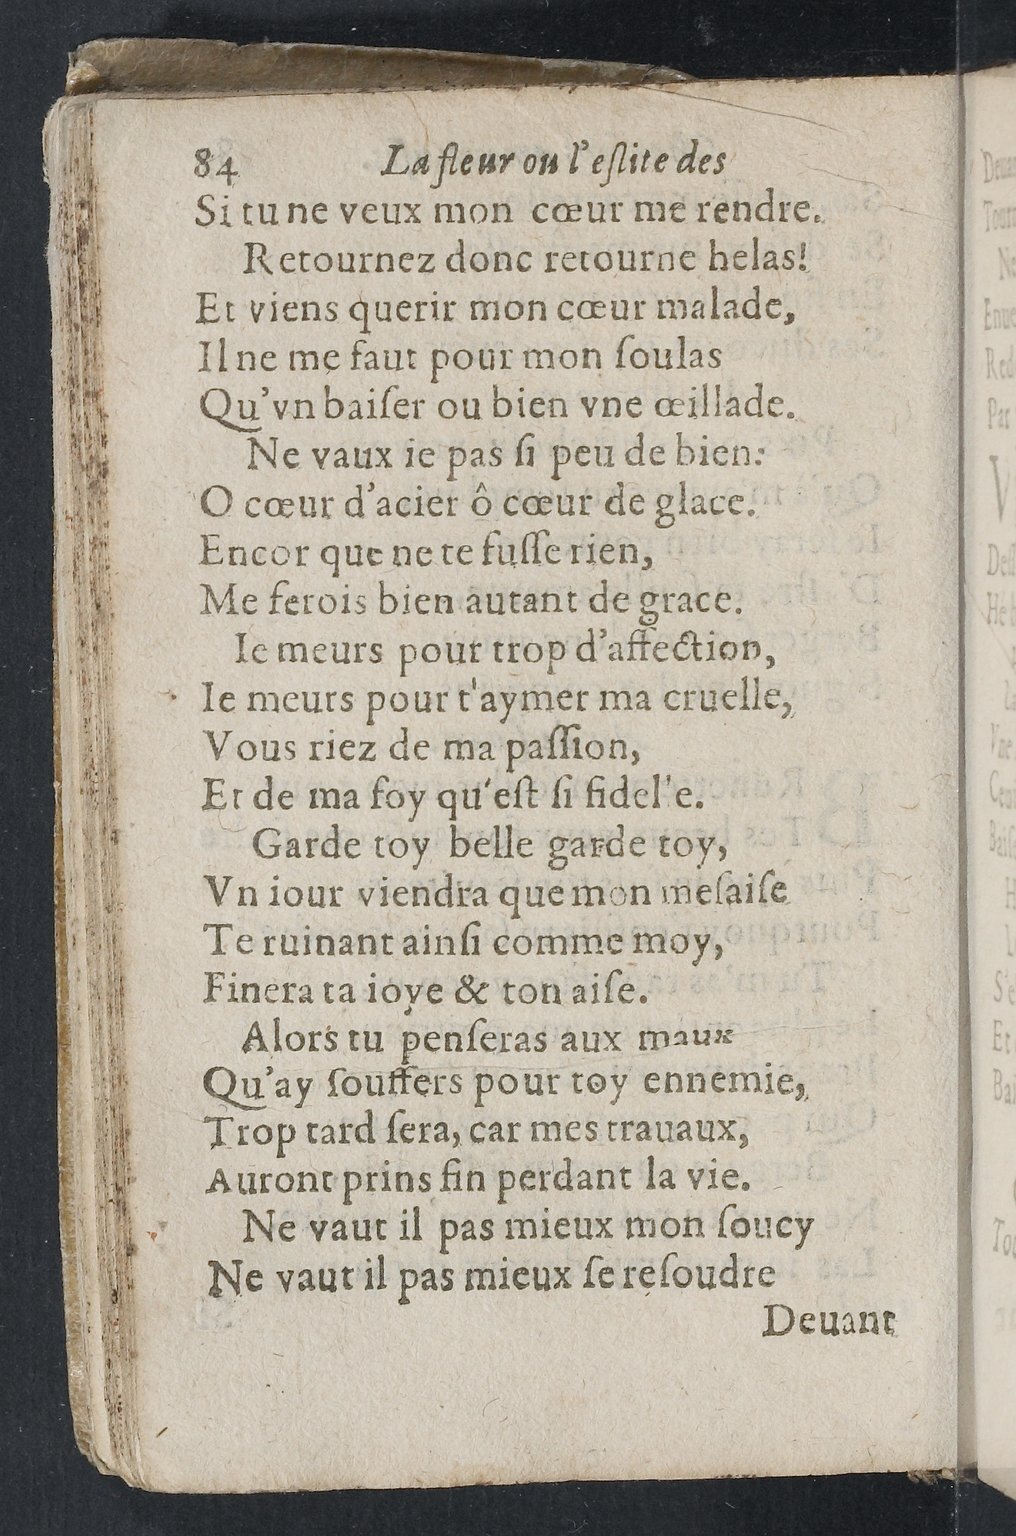 84 La fleur ou l'eſlite des
Si tu ne veux mon cœur me rendre.
Retournez donc retourne helas!
Et viens querir mon cœur malade,
Il ne me faut pour mon ſoulas
Qu'vn baiſer ou bien vne œillade.
Ne vaux ie pas ſi peu de bien:
O cœur d'acier ô cœur de glace.
Encor que ne te fuſſe rien,
Me ferois bien autant de grace.
Ie meurs pour trop d'affection,
Ie meurs pour t'aymer ma cruelle,
Vous riez de ma paſſion,
Et de ma foy qu'eſt ſi fidel'e.
Garde toy belle garde toy,
Vn iour viendra que mon meſaiſe
Te ruinant ainſi comme moy,
Finera ta ioye & ton aiſe.
Alors tu penſeras aux maux
Qu'ay ſouffers pour toy ennemie,
Trop tard ſera, car mes trauaux,
Auront prins fin perdant la vie.
Ne vaut il pas mieux mon ſoucy
Ne vaut il pas mieux ſe reſoudre
Deuant